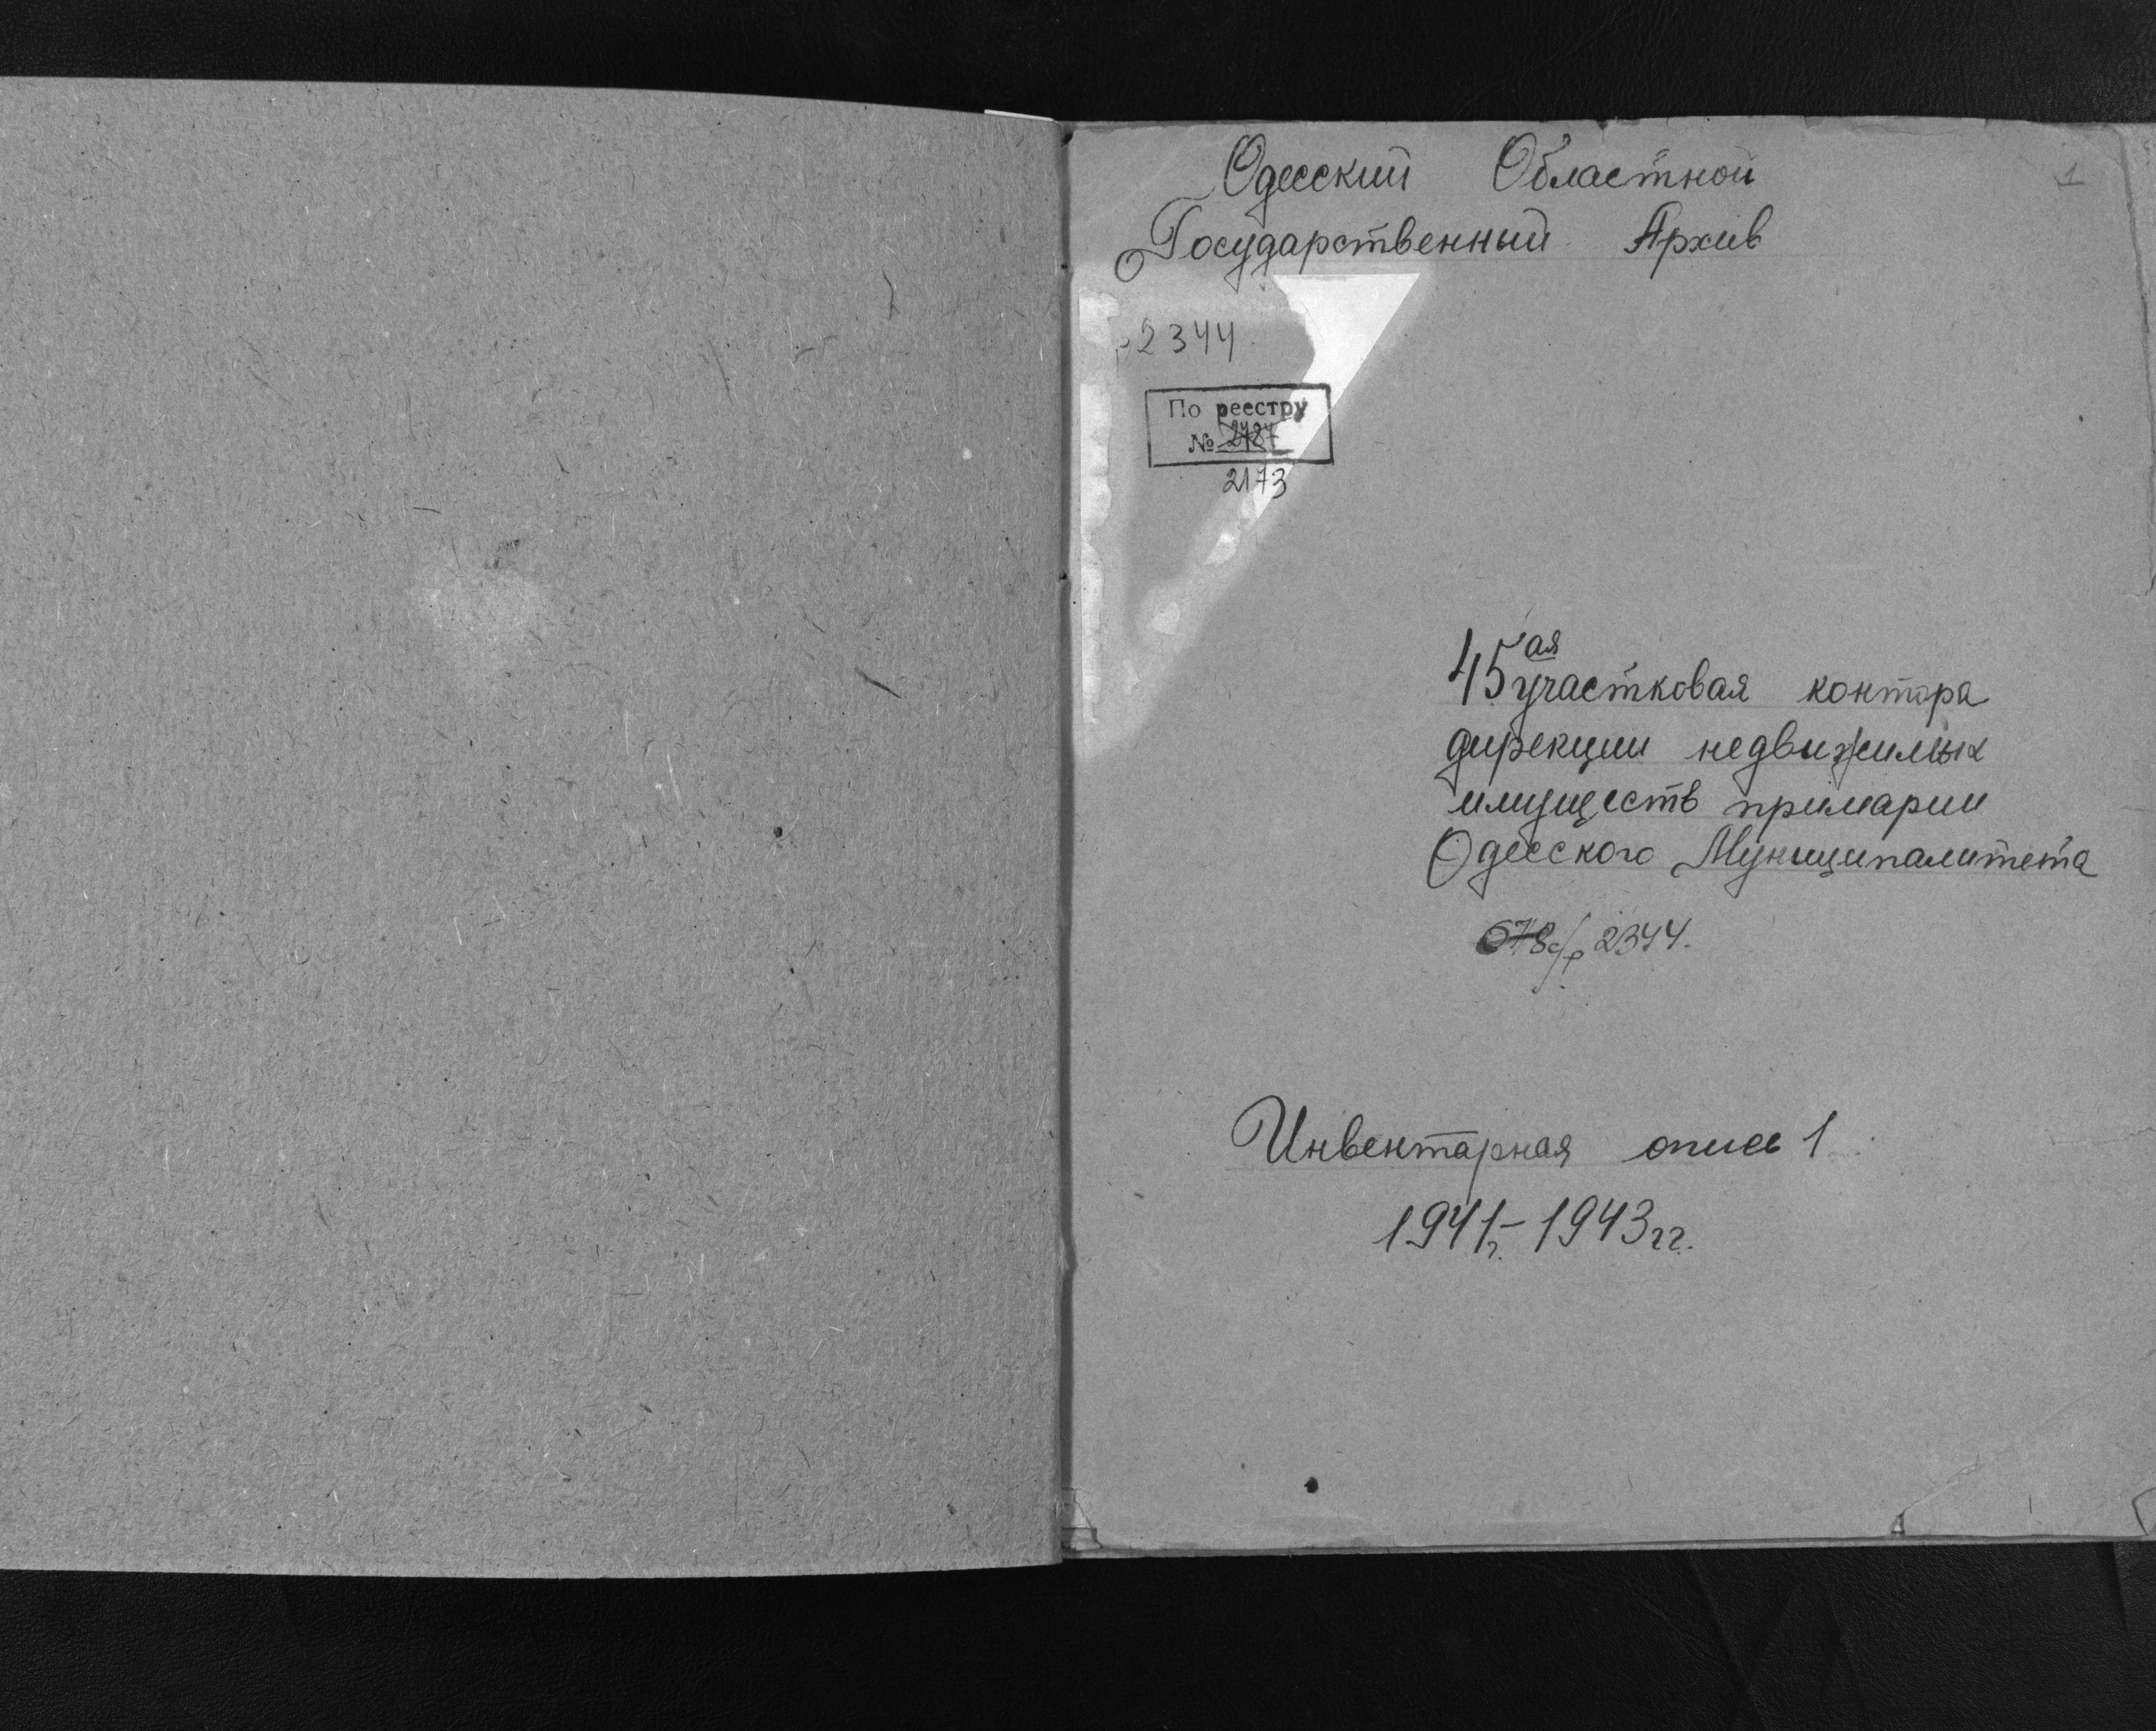 Одесский Областной
Государственный Архив
1
р2344
По реестру
№ 2787
2173
45ая участковая контора
дирекции недвижимых
имуществ примарии
Одесского Муниципалитета
678с/р 2344.
Инвентарная опись 1
1941г.-1943гг.